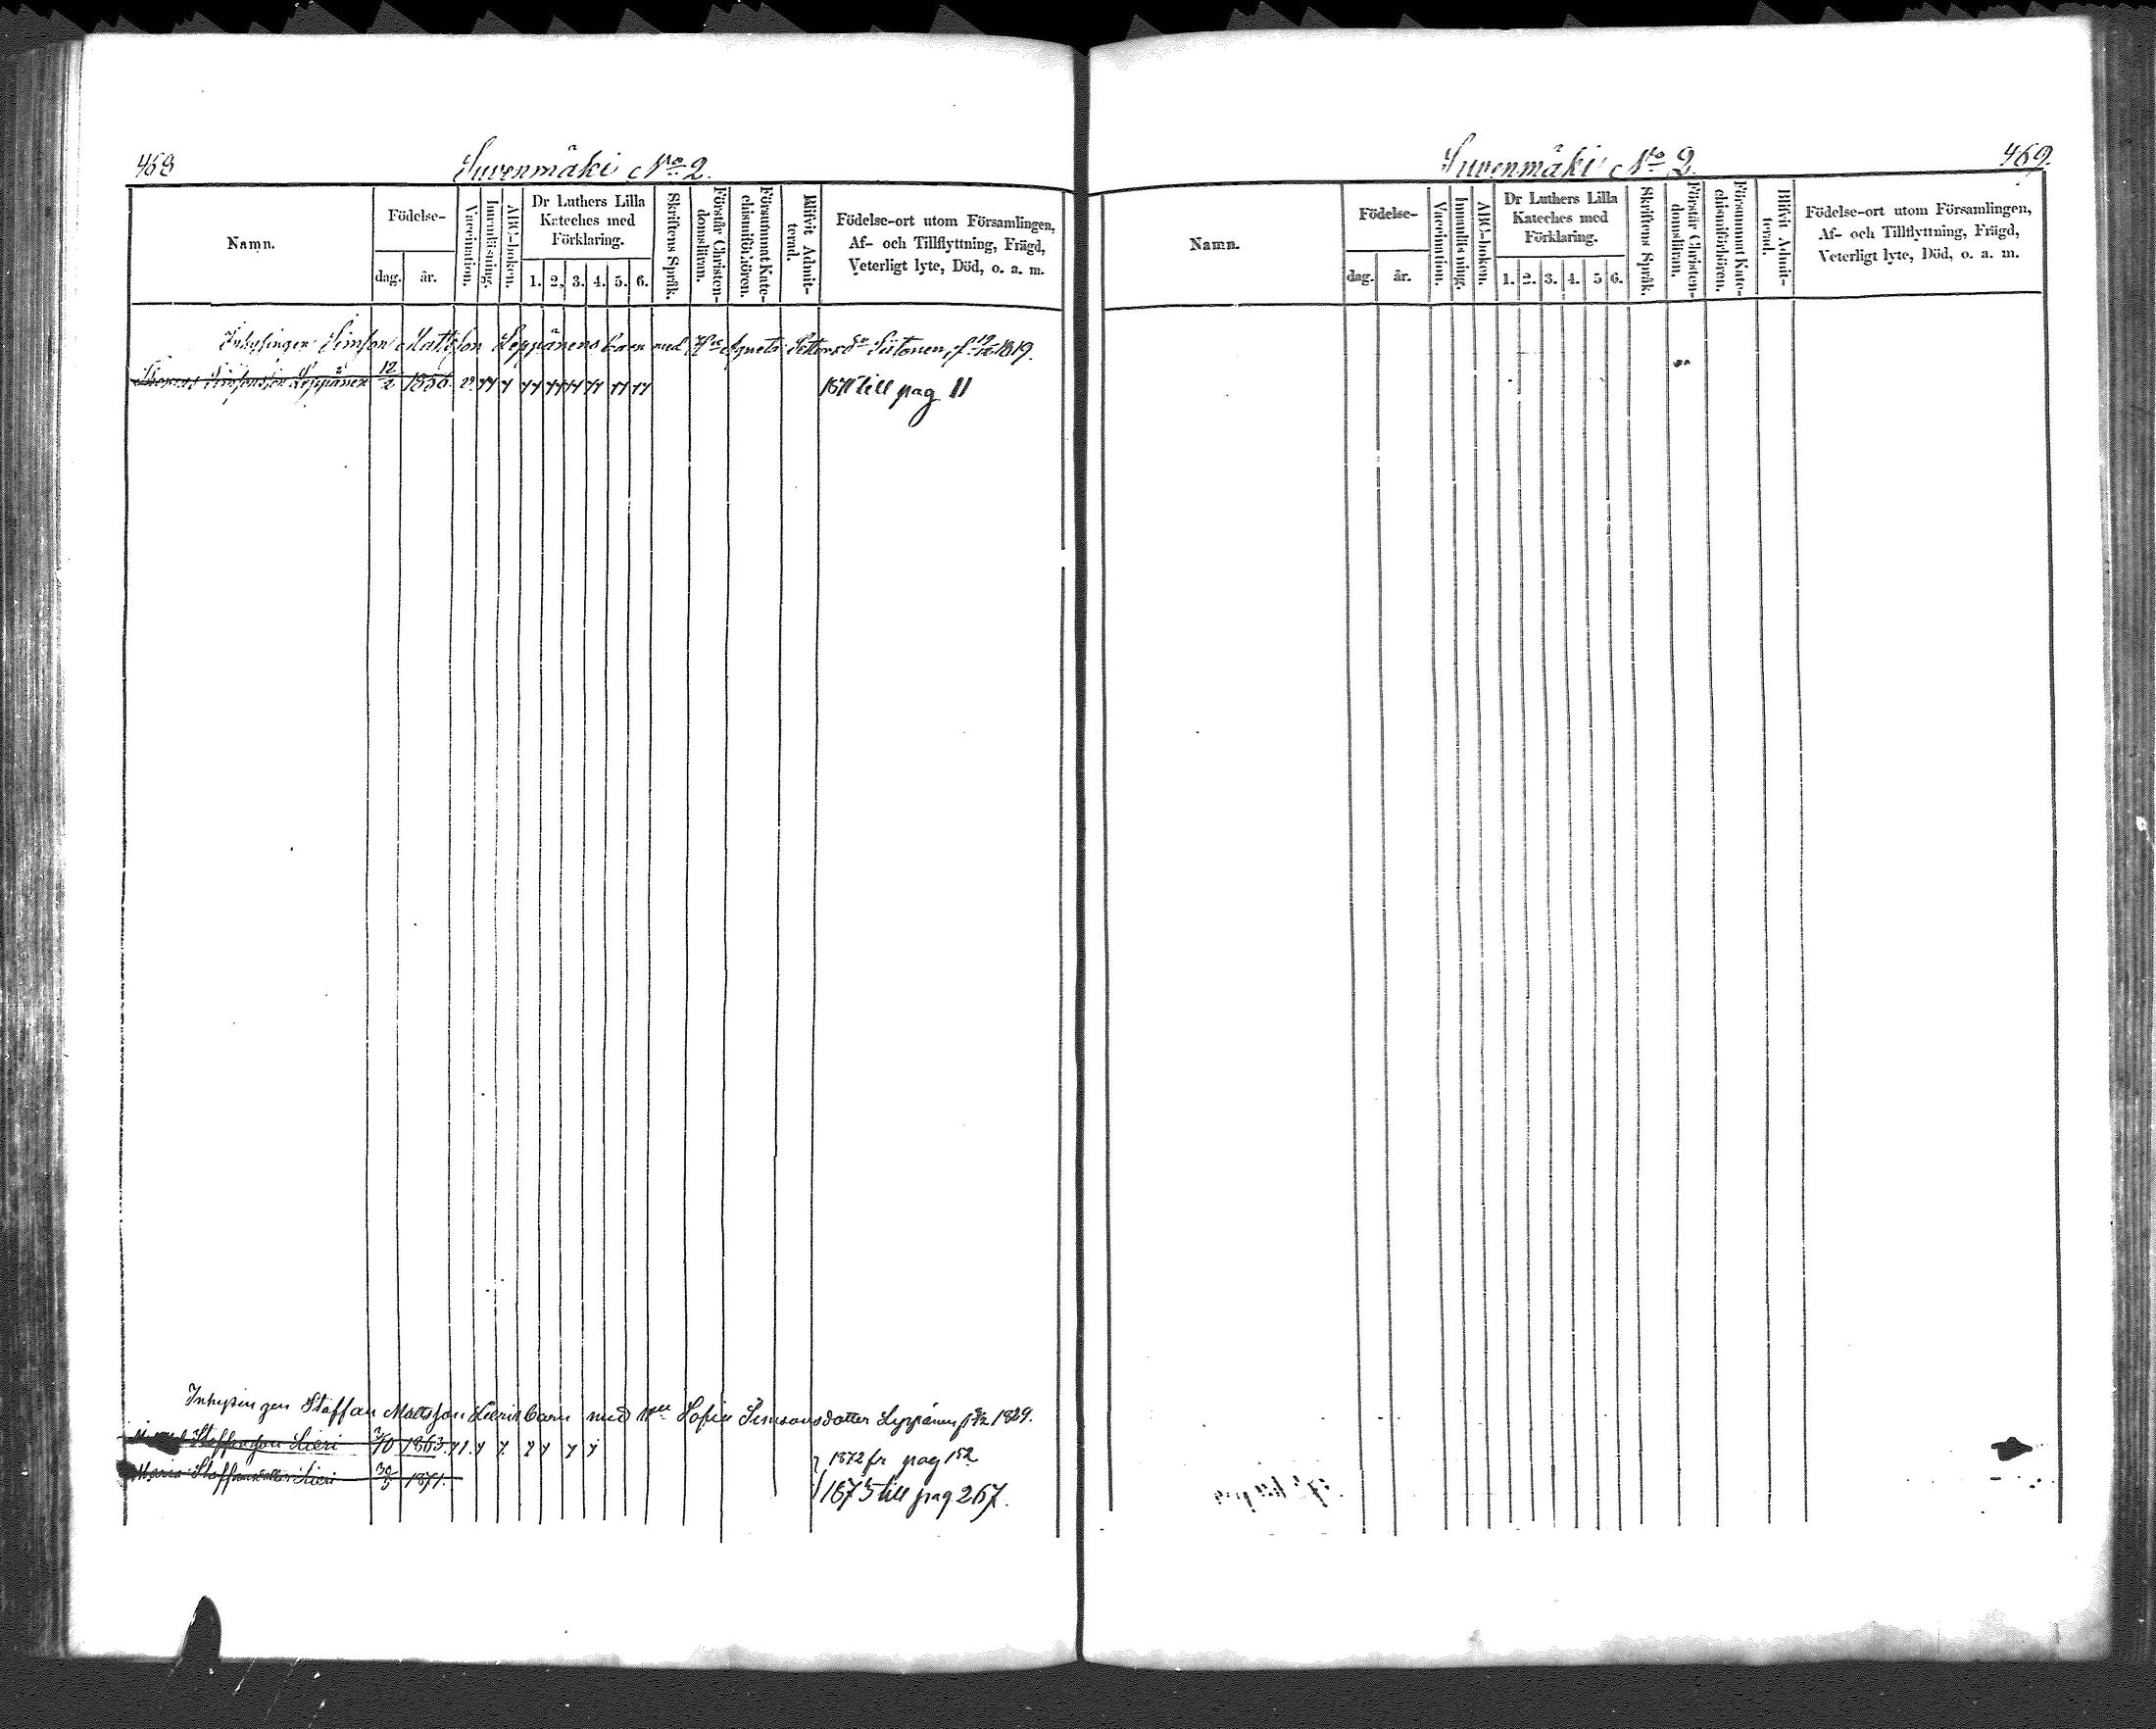 468
Suvenmäki No 2.
Namn.
Födelse-
dag.
år.
Vaccination.
Innanläsning.
ABC-boken.
Dr Luthers Lilla
Kateches med
Förklaring.
1. 2. 3. 4. 5. 6.
Skriftens Språk.
Förstår Christen-
domsläran.
Försummat Kate-
chismiförhören.
Blifvit Admit-
terad.
Födelse-ort utom Församlingen,
Af- och Tillflyttning, Frägd,
Veterligt lyte, Död, o. a. m.
Inhysingen Simson Mattsson Leppänens barn med Agneta Pettersdr Siitonen, f. 19/12 1819.
Thomas Simsonson Leppänen 12/2 1856.
1871 till pag 11
Inhysingen Staffan Mattsson Lieris barn med Sofia Simsonsdotter Leppänen 1829.
Staffansson Lieri 1863.
Maria Staffansdotter Lieri 30/5 1871.
1872 fr pag 152
1875 till pag 267.
Suvenmäki No 2.
469.
Namn.
Födelse-
dag.
år.
Vaccination.
Innanläsning.
ABC-boken.
Dr Luthers Lilla
Kateches med
Förklaring.
1. 2. 3. 4. 5 6.
Skriftens Språk.
Förstår Christen-
domsläran.
Försummat Kate-
chismiförhören.
Blifvit Admit-
terad.
Födelse-ort utom Församlingen,
Af- och Tillflyttning, Frägd,
Veterligt lyte, Död, o. a. m.